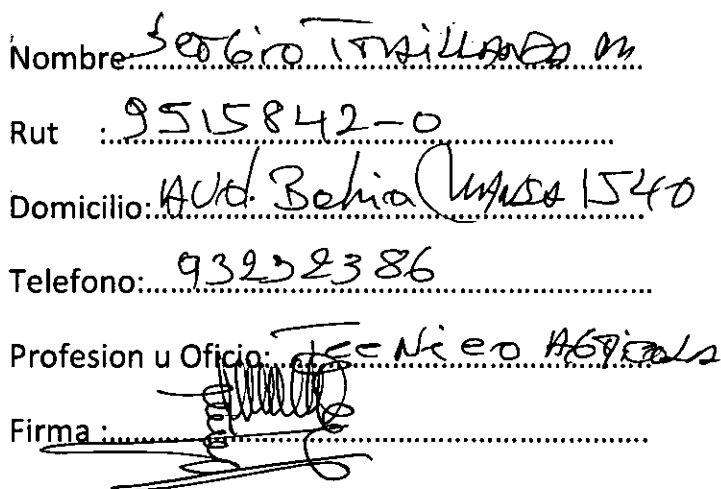 Nombre Sergio Traillanca M
Rut : 9515842-0
Domicilio: AVd. Bahia Mansa 1540
Telefono: 93232386
Profesion u Oficio: Tecnico Agricola
Firma :